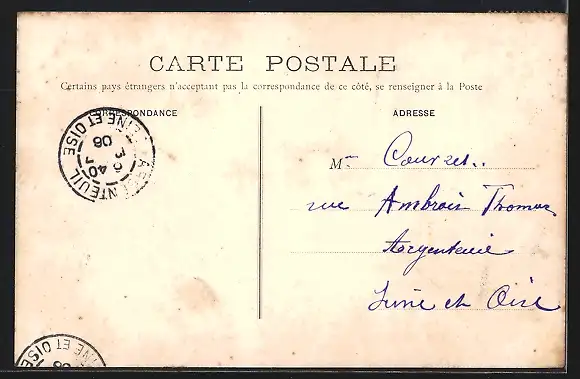 CARTE POSTALE
Certains pays étrangers n'acceptant pas la correspondance de ce côté, se renseigner à la Poste
CORRESPONDANCE
ADRESSE
ARGENTEUIL
SEINE ET OISE
6 40
3
06
M
rue Ambroise Thomas
Argenteuil
Seine et Oise
SEINE ET OISE
06